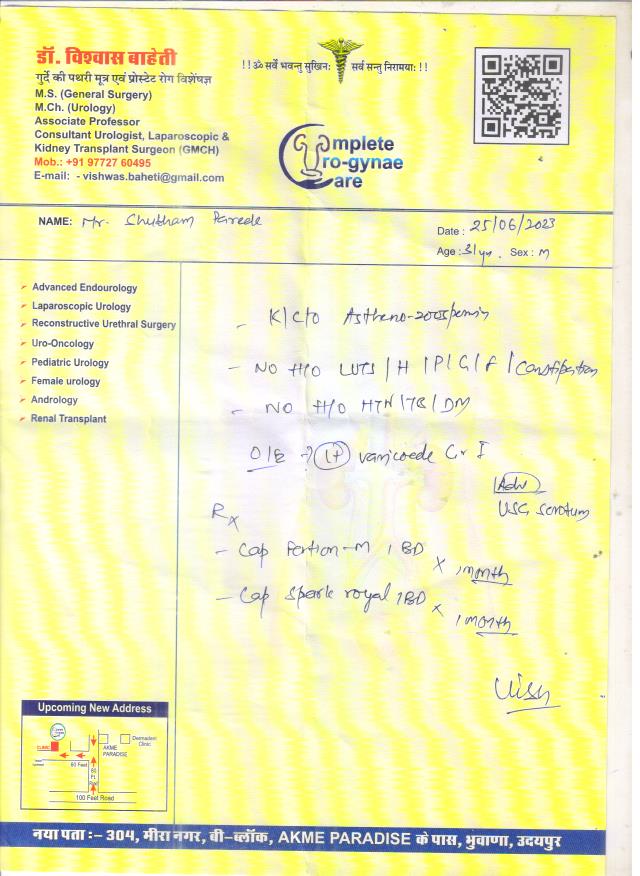 डॉ. विश्वास बाहेती
गुर्दे की पथरी मूत्र एवं प्रोस्टेट रोग विशेषज्ञ
M.S. (General Surgery)
M.Ch. (Urology)
Associate Professor
Consultant Urologist, Laparoscopic &
Kidney Transplant Surgeon (GMCH)
Mob.: +91 97727 60495
E-mail: - vishwas.baheti@gmail.com
!!ॐ सर्वे भवन्तु सुखिनः सर्व सन्तु निरामयाः !!
Complete
Uro-gynae
Care
NAME: Mr. Shubham
Date : 25/06/2023
Age : 31 yr. Sex : M
Advanced Endourology
Laparoscopic Urology
Reconstructive Urethral Surgery
Uro-Oncology
Pediatric Urology
Female urology
Andrology
Renal Transplant
- K/C/O Astheno-zoospermia
- NO H/O LUTS / H / P / G / F / Constipation
- NO H/O HTN / TB / DM
O/E → Lt varicocele Gr I
Adv
USG Scrotum
Rx
- Cap 1 BD x 1 month
- Cap Spark royal 1 BD x 1 month
Upcoming New Address
CLINIC
AKME PARADISE
Dermadent Clinic
60 Feet
60 Ft. Road
100 Feet Road
नया पता :- 304, मीरा नगर, बी-ब्लॉक, AKME PARADISE के पास, भुवाणा, उदयपुर